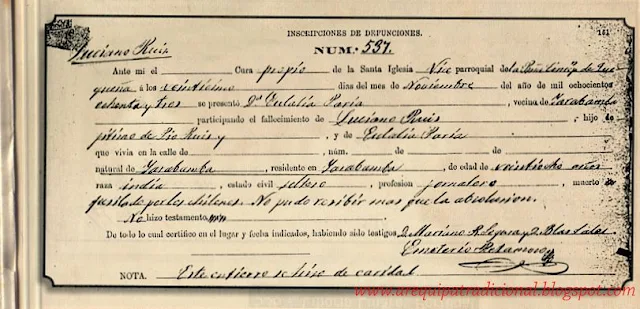 INSCRIPCIONES DE DEFUNCIONES.
161
Luciano Ruis
NUM. 537.
Ante mi el Cura propio de la Santa Iglesia Vice parroquial de la
á los veintiseis dias del mes de Noviembre del año de mil ochocientos
ochenta y tres se presentó Dª Eulalia Paria, vecina de Yarabamba
participando el fallecimiento de Luciano Ruis, hijo de
jitimo de Pio Ruis y, y de Eulalia Paria
que vivia en la calle de, núm. de
natural de Yarabamba, residente en Yarabamba, de edad de veintiocho años
raza india, estado civil soltero, profesion jornalero, muerto
fusilado por los chilenos. No pudo recibir mas que la absolusion.
No hizo testamento
De todo lo cual certifico en el lugar y fecha indicados, habiendo sido testigos D. Mariano y D. Blas Salas
Emeterio Retamoso
NOTA. Este entierro se hizo de caridad
www.arequipatradicional.blogspot.com